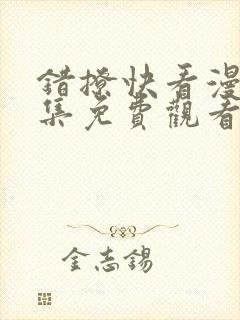 錯撩快看漫
集免費觀看
金志錫